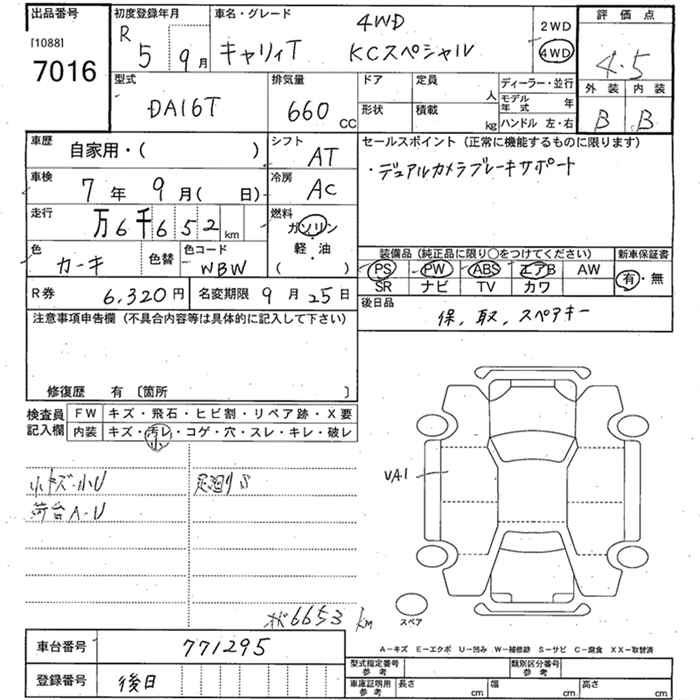 出品番号 初度登録年月 車名・グレード 4WD 2WD 評価点
[1088] R 5 9月 キャリィT KCスペシャル 4WD 4.5
7016
型式 排気量 ドア 定員 人 ディーラー・並行 外装 内装
DA16T 660 CC 形状 積載 kg モデル年式 年 B B
ハンドル 左・右
車歴 自家用・( ) シフト AT セールスポイント (正常に機能するものに限ります)
・デュアルカメラブレーキサポート
車検 7年 9月( 日) 冷房 AC
走行 万6千652km 燃料 ガソリン・軽・油 ( )
色 カーキ 色替 色コード WBW
装備品 (純正品に限り○をつけてください) 新車保証書
PS PW ABS エアB AW 有・無
SR ナビ TV カワ
R券 6,320円 名変期限 9月25日 後日品
保、取、スペアキー
注意事項申告欄 (不具合内容等は具体的に記入して下さい)
修復歴 有 〔箇所 〕
検査員記入欄 FW キズ・飛石・ヒビ割・リペア跡・X要
内装 キズ・汚レ・コゲ・穴・スレ・キレ・破レ
小
小キズ・小U 足廻りS
荷台A-U
UA1
スペア
6653km
車台番号 771295
A-キズ E-エクボ U-凹み W-補修跡 S-サビ C-腐食 XX-取替済
登録番号 後日
型式指定番号 参考 類別区分番号 参考
車庫証明用 参考 長さ cm 幅 cm 高さ cm